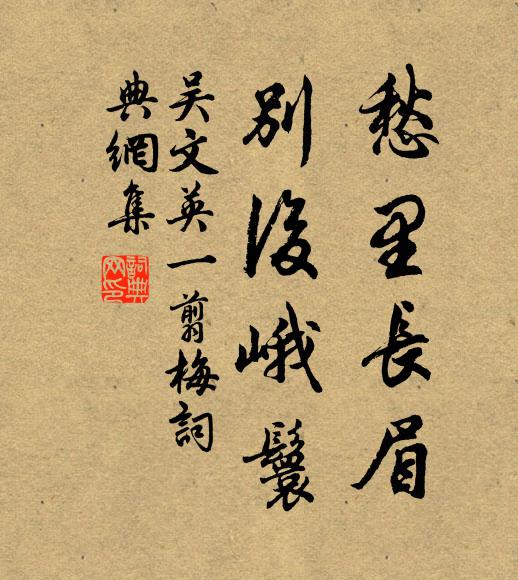 愁里長眉
別後峨鬟
吳文英一翦梅詞
典網集
詞典网印